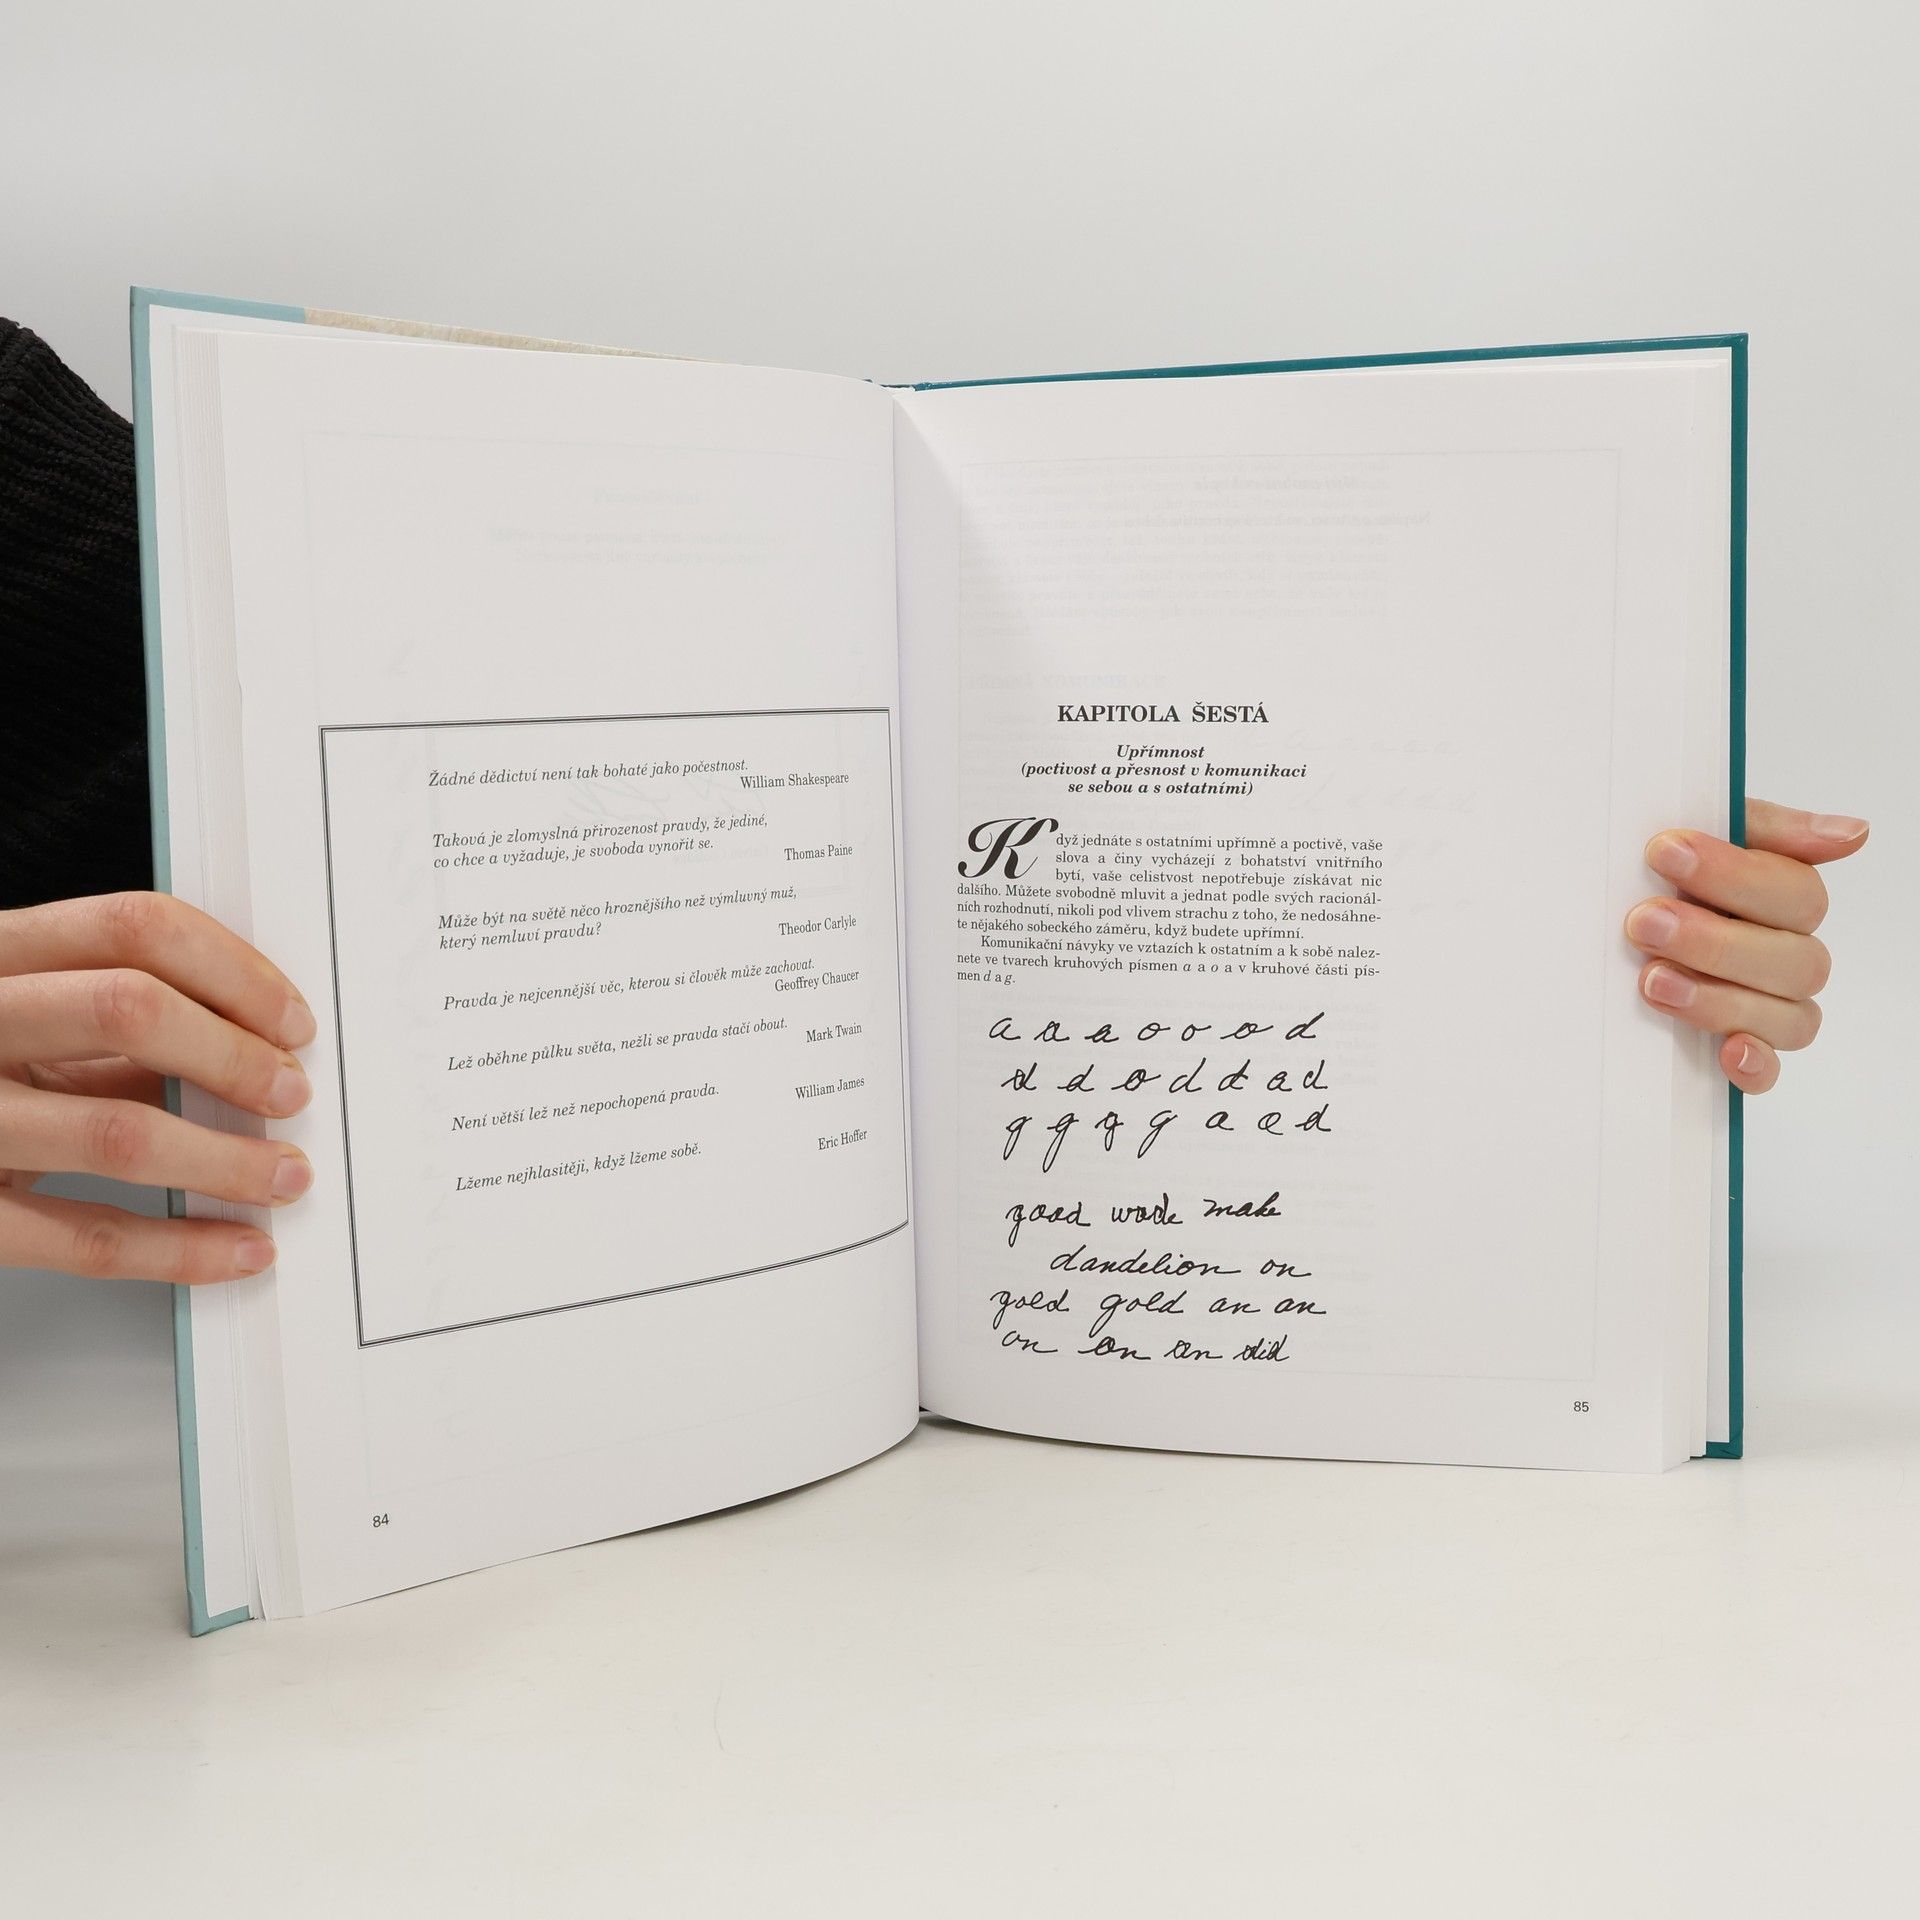 Žádné dědictví není tak bohaté jako počestnost.
William Shakespeare
Taková je zlomyslná přirozenost pravdy, že jediné,
co chce a vyžaduje, je svoboda vynořit se.
Thomas Paine
Může být na světě něco hroznějšího než výmluvný muž,
který nemluví pravdu?
Theodor Carlyle
Pravda je nejcennější věc, kterou si člověk může zachovat.
Geoffrey Chaucer
Lež oběhne půlku světa, nežli se pravda stačí obout.
Mark Twain
Není větší lež než nepochopená pravda.
William James
Lžeme nejhlasitěji, když lžeme sobě.
Eric Hoffer
84
KAPITOLA ŠESTÁ
Upřímnost
(poctivost a přesnost v komunikaci
se sebou a s ostatními)
Když jednáte s ostatními upřímně a poctivě, vaše
slova a činy vycházejí z bohatství vnitřního
bytí, vaše celistvost nepotřebuje získávat nic
dalšího. Můžete svobodně mluvit a jednat podle svých racionál-
ních rozhodnutí, nikoli pod vlivem strachu z toho, že nedosáhne-
te nějakého sobeckého záměru, když budete upřímní.
Komunikační návyky ve vztazích k ostatním a k sobě nalez-
nete ve tvarech kruhových písmen a a o a v kruhové části pís-
men d a g.
a a a o o o d
d d o d d a d
g g g g a a d
good wode make
dandelion on
gold gold an an
on on on did
85